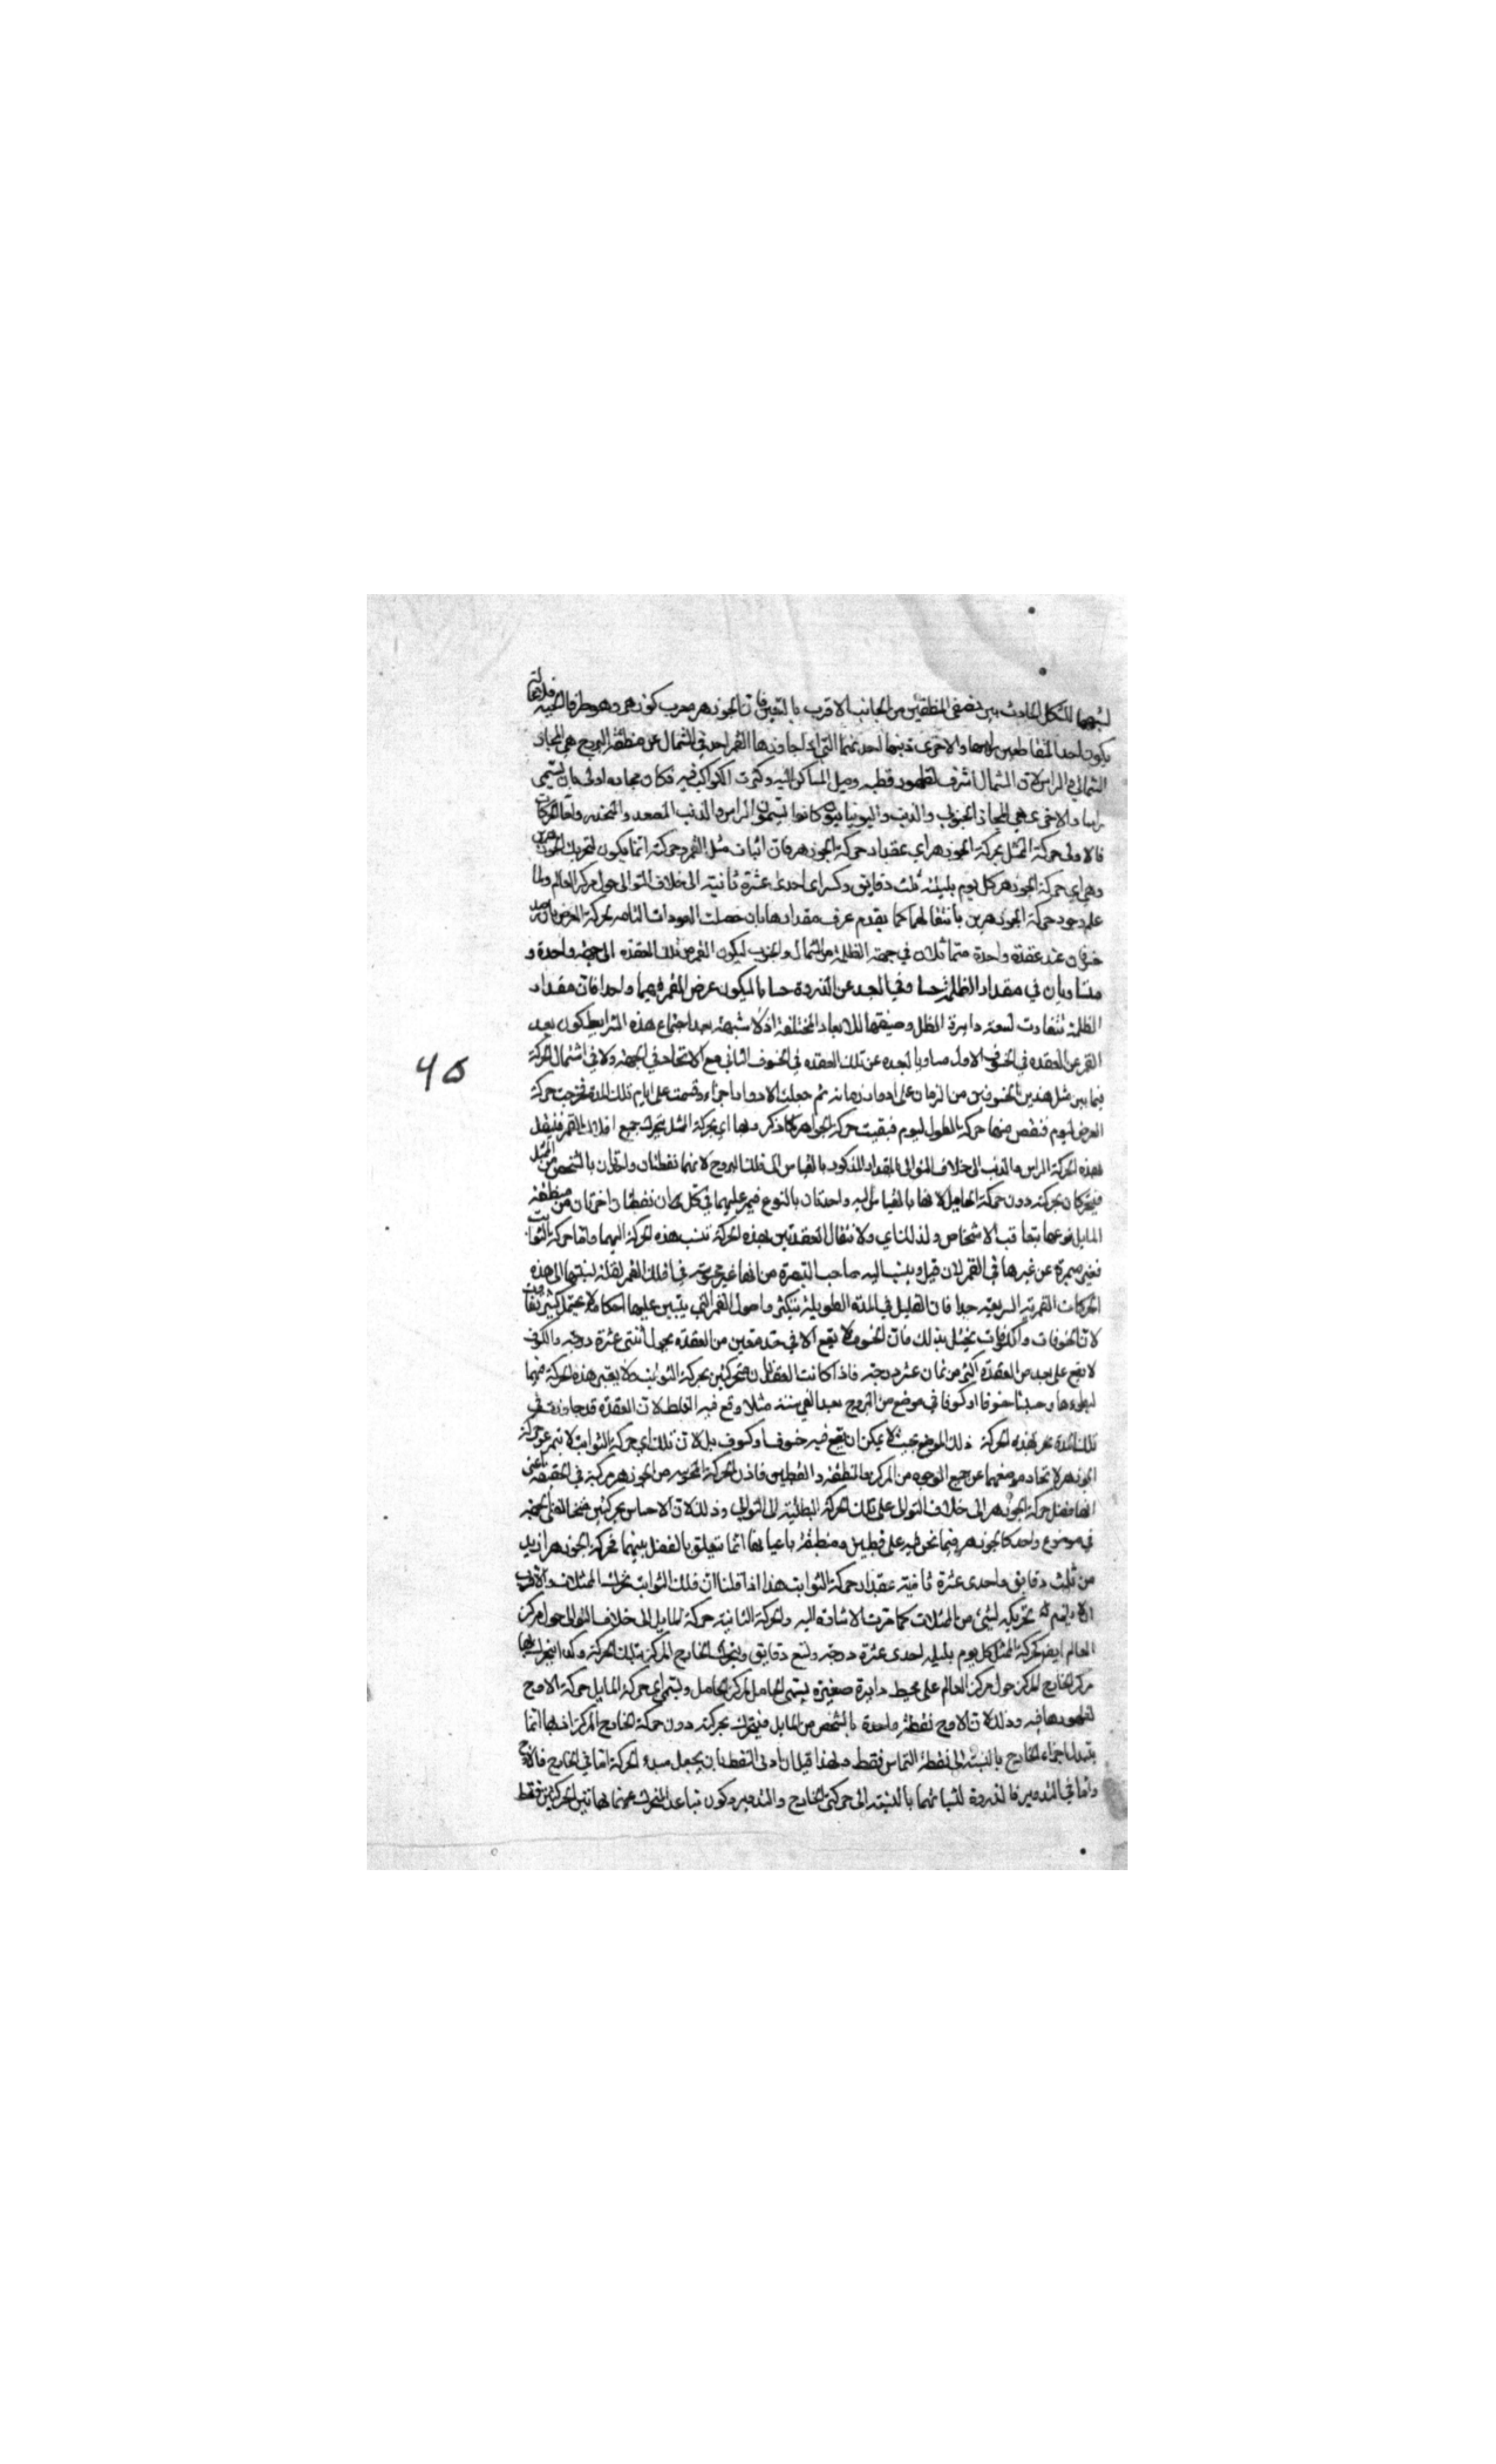 للشكل الحادث بين نصفى المنطقتين من الجانب الاقرب بالتنين فان الجوزهر معرب كوزهر وهو طرفا الحية
يكون احد المتقاطعين راسها والاخرى ذنبها احديهما التى اذا جاوزها القمر اخذ فى الشمال عن منطقة البروج هى المجاز
الشمالى والراس لان الشمال اشرف لظهور قطبه وميل المساكن اليه وكثرت الكواكب فيه فكان مجازه اولى بان يسمى
راسا والاخرى هى المجاز الجنوبى والذنب واليونانيون كانوا يسمون الراس والذنب المصعد والمنحدر واما الحركات
فالاولى حركة الممثل بحركة الجوزهر اى عقياد حركة الجوزهر فان اثبات مثل القمر وحركته انما يكون لتحريك الجوزهرين
وهى اى حركة الجوزهر كل يوم بليلته ثلث دقايق وكسر اى احدى عشرة ثانية الى خلاف التوالى حول مركز العالم ولما
علم وجود حركة الجوزهرين بانتقالهما كما يقدم عرف مقدارها بان حصلت العودات التامه بحركة العرض بان رصد
خسوفان عند عقدة واحدة متماثلان فى جهة الظلمة من الشمال والجنوب ليكون القمر من تلك العقده الى جهة واحدة و
متساويان فى مقدار الظلمة حسا وفى البعد عن الذروة حسابا ليكون عرض القمر فيهما واحدا فان مقدار
الظلمة تتفاوت لسعة دايرة الظل وضيقها للابعاد المختلفة اذ لا شبهة بعد اجتماع هذه الشرايط يكون بعد
القمر عن العقده فى الخسوف الاول مساويا لبعده عن تلك العقده فى الخسوف الثانى مع الاتحاد فى الجهة ولا فى اشتمال الحركة
فيما بين مثل هذين الخسوفين من الزمان على ادوار زمانه ثم جعلت الادوار اجزاء وقسمت على ايام تلك المدة فخرجت حركة
العرض ليوم فنقص منها حركة الطول ليوم فبقيت حركة الجوزهر كما ذكر وبها اى بحركة الممثل يتحرك جميع افلاك القمر فينتقل
بهذه الحركة الراس والذنب الى خلاف التوالى بالمقدار المذكور بالقياس الى فلك البروج لانهما نقطتان واحدتان بالشخص من الممثل
فيتحركان بحركته دون حركة الحامل لانها بالقياس اليه واحدتان بالنوع فيمر عليهما فى كل زمان نقطتان اخريان من منطقة
المايل نوعها بتعاقب الاشخاص ولذلك اى ولانتقال العقدتين بهذه الحركة تنسب هذه الحركة اليهما واما حركة الثوابت
فغير مميزة عن غيرها فى القمر لان قيل وينسب اليه صاحب التبصرة من انها غير محسوسة فى افلاك القمر لقلة نسبتها الى هذه
الحركات القمرية السريعة جدا فان القليل فى المدة الطويلة يتكثر واصول القمر التى يتبين عليها احكامه لا يحتمل كثير تفاوت
لان الخسوفات والكسوفات يختل بذلك فان الخسوف لا يقع الا فى حد معين من العقدة يجول اثنتى عشرة درجة والكسوف
لا يقع على بعد من العقدة اكثر من ثمان عشر درجة فاذا كانت العقدتان متحركتين بحركة الثوابت ولا يعتبر هذه الحركة فيهما
لبطوءها وحسبنا خسوفا او كسوفا فى موضع من البروج بعد الفى سنة مثلا وقع فيه الغلط لان العقدة قد جاوزت فى
تلك المدة بهذه الحركة ذلك الموضع بحيث لا يمكن ان يقع فيه خسوف او كسوف بل لان تلك اى حركة الثوابت لا تتميز عن حركة
الجوزهر لاتحاد موضعهما عن جميع الوجوه من المركز والمنطقة والقطبين فاذن الحركة المحسوسة من الجوزهر مركبة فى الحقيقة اعنى
انها فضل حركة الجوزهر الى خلاف التوالى على تلك الحركة البطيئة الى التوالى وذلك لان الاحساس بحركتين مختلفتى الجهة
فى موضوع واحد كالجوزهر فيما نحن فيه على قطبين ومنطقة باعيانها انما يتعلق بالفضل بينهما فحركة الجوزهر ازيد
من ثلث دقايق واحدى عشرة ثانية عقياد حركة الثوابت هذا اذا قلنا ان فلك الثوابت يحرك الممثلات والاقرب
انه لم يتم تحريكه لشىء من الممثلات كما مرت الاشارة اليه والحركة الثانية حركة المايل الى خلاف التوالى حول مركز
العالم ايضا كحركة الممثل كل يوم بليلته احدى عشرة درجة وتسع دقايق ويتحرك الخارج المركز بتلك الحركة وكذا يتحرك بها
مركز الخارج المركز حول مركز العالم على محيط دايرة صغيرة يسمى الحامل لمركز الحامل ويسمى اى حركة المايل حركة الاوج
لظهورها فيه وذلك لان الاوج نقطة واحدة بالشخص من المايل فيتحرك بحركته دون حركة الخارج المركز اذ بها انما
يتبدل اجزاء الخارج بالنسبة الى نقطة التماس فقط ولهذا قيل ان ادنى النقط بان يجعل مبدء الحركة اما فى الخارج فالاوج
واما فى التدوير فالذروة لثباتهما بالنسبة الى حركتى الخارج والتدوير وكون تباعد المتحرك عنهما بهاتين الحركتين فقط
45